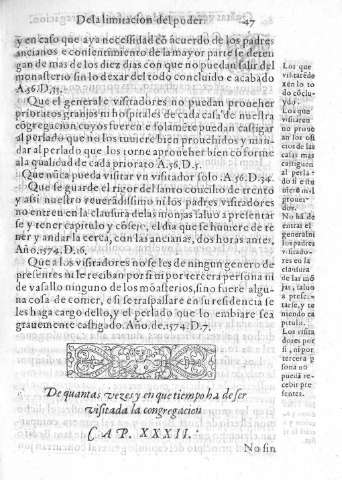 De la limitacion del poder. 47
y en caso que aya necessidad cõ acuerdo de los padres
ancianos e consentimiento de la mayor parte se deten
gan de mas de los diez dias con que no puedan salir del
monasterio sin lo dexar del todo concluido e acabado
A.56.D.33.
Que el general e visitadores no puedan proueher
prioratos granjas ni hospitales de cada casa de nuestra
cõgregacion cuyos fueren e solamẽte puedan castigar
al perlado que no los tuuiere bien prouehidos y man-
dar al perlado que los torne aproueher bien cõ forme
a la qualidad de cada priorato A.56.D.5.
Que nũca pueda visitar vn visitador solo .A.56.D.34.
Que se guarde el rigor del santo concilio de trento
y assi nuestro reuerẽdissimo ni los padres visitadores
no entren en la clausura de las monjas saluo a presentar
se y tener capitulo y cõsejo, el dia que se huuiere de te
ner y andar la cerca, con las ancianas, dos horas antes,
Año.1574.D.16.
Que a los visitadores no se les de ningun genero de
presentes ni le reciban por si ni por tercera persona ni
de vasallo ninguno de los mõasterios, sino fuere algu-
na cosa de comer, e si se traspassare en su residencia se
les haga cargo dello, y el perlado que lo embiare sea
grauemente castigado. Año.de.1574.D.7.
De quantas vezes y en que tiempo ha de ser
visitada la congregacion
CAP. XXXII.
No sin
Los que
visitarẽ de
xen lo to
do cõclu-
ydo.
Los que
visitaren
no prouean
los
cios de las
casas mas
castiguen
al perla-
do si
prouer-
No ha de
entrar el
general ni
los padres
visitado-
res en la
clausura
de las mõ
jas, saluo
a presen-
tarse, y te
niendo ca
pitulo.
Los visita
dores por
si, ni por
tercera p
sona no
puedã re-
cebir pre
sentes.